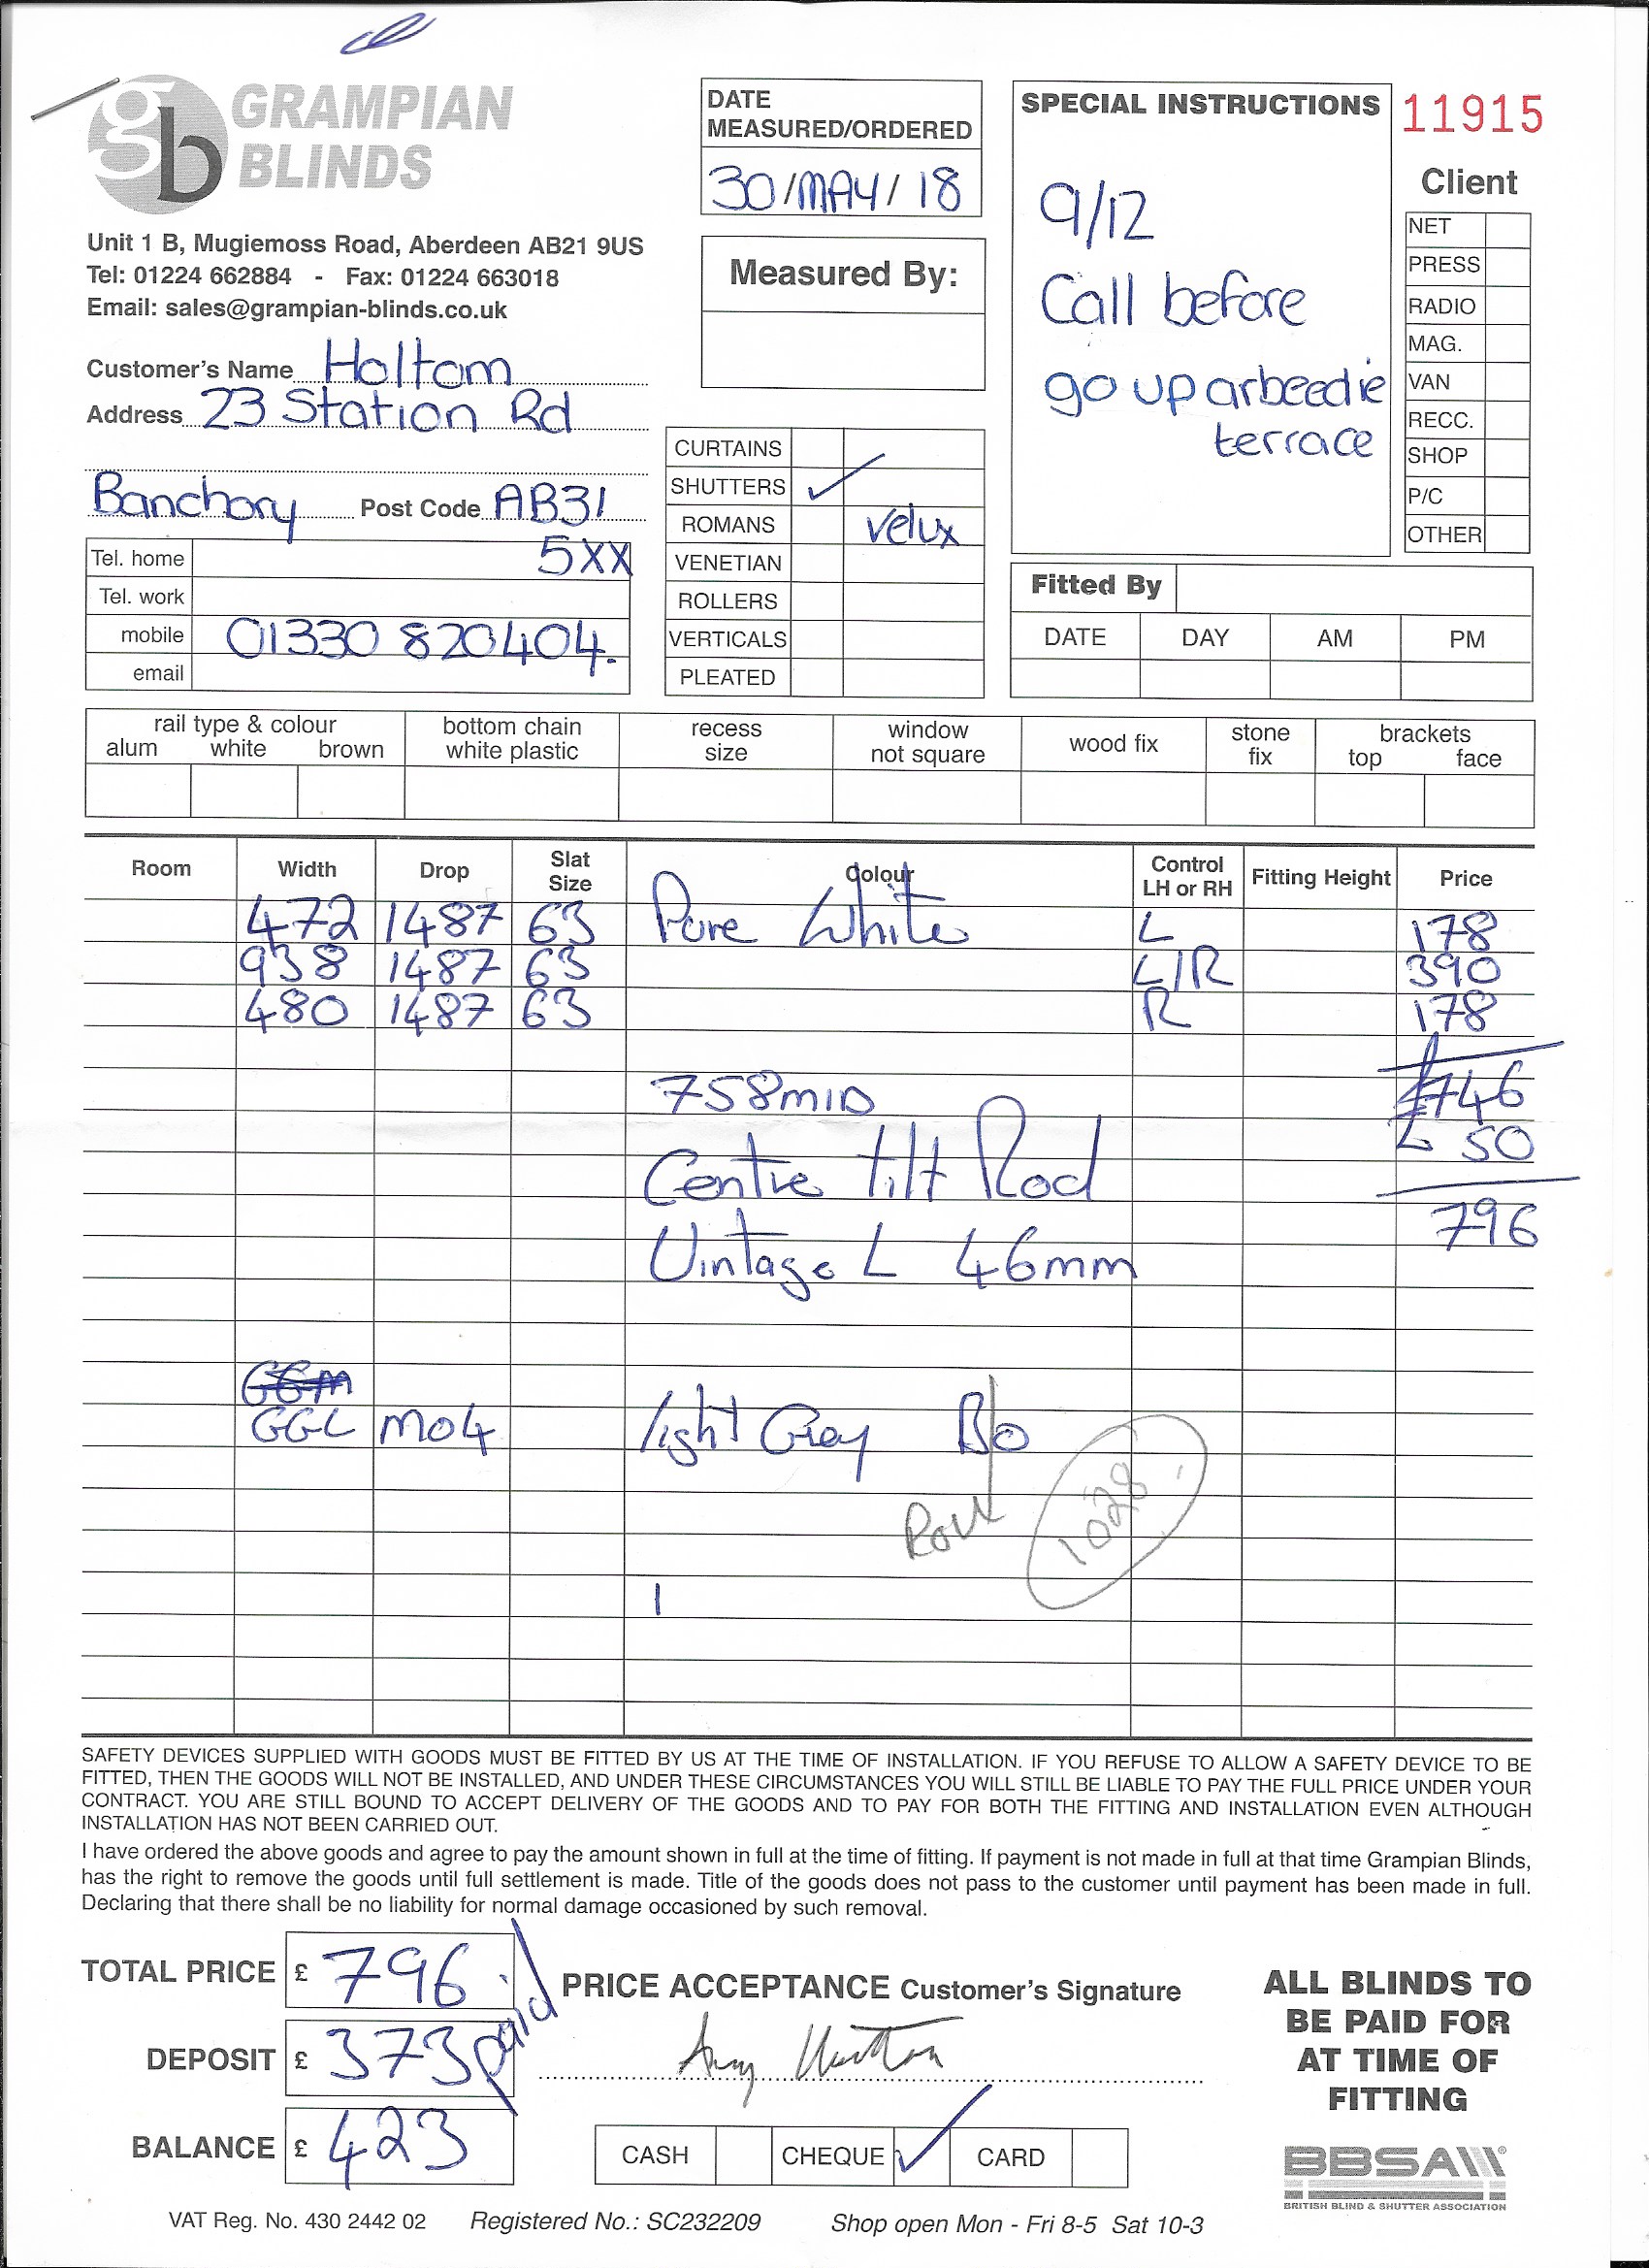 GRAMPIAN
BLINDS
Unit 1 B, Mugiemoss Road, Aberdeen AB21 9US
Tel: 01224 662884 - Fax: 01224 663018
Email: sales@grampian-blinds.co.uk
Customer's Name Holtom
Address 23 Station Rd
Banchory Post Code AB31
5XX
Tel. home
Tel. work
mobile 01330 820404.
email
DATE
MEASURED/ORDERED
30/MAY/18
Measured By:
CURTAINS
SHUTTERS ✓
ROMANS Velux
VENETIAN
ROLLERS
VERTICALS
PLEATED
SPECIAL INSTRUCTIONS
9/12
Call before
go up arbeedie
terrace
11915
Client
NET
PRESS
RADIO
MAG.
VAN
RECC.
SHOP
P/C
OTHER
Fitted By
DATE DAY AM PM
rail type & colour
alum white brown
bottom chain
white plastic
recess
size
window
not square
wood fix
stone
fix
brackets
top face
Room Width Drop Slat Size Colour Control LH or RH Fitting Height Price
472 1487 63 Pure White L 178
938 1487 63 L/R 390
480 1487 63 R 178
758 MID £746
£ 50
Centre tilt Rod
796
Vintage L 46mm
GGL M04 light Grey B/O
1028
SAFETY DEVICES SUPPLIED WITH GOODS MUST BE FITTED BY US AT THE TIME OF INSTALLATION. IF YOU REFUSE TO ALLOW A SAFETY DEVICE TO BE
FITTED, THEN THE GOODS WILL NOT BE INSTALLED, AND UNDER THESE CIRCUMSTANCES YOU WILL STILL BE LIABLE TO PAY THE FULL PRICE UNDER YOUR
CONTRACT. YOU ARE STILL BOUND TO ACCEPT DELIVERY OF THE GOODS AND TO PAY FOR BOTH THE FITTING AND INSTALLATION EVEN ALTHOUGH
INSTALLATION HAS NOT BEEN CARRIED OUT.
I have ordered the above goods and agree to pay the amount shown in full at the time of fitting. If payment is not made in full at that time Grampian Blinds,
has the right to remove the goods until full settlement is made. Title of the goods does not pass to the customer until payment has been made in full.
Declaring that there shall be no liability for normal damage occasioned by such removal.
TOTAL PRICE £ 796
DEPOSIT £ 373 paid
BALANCE £ 423
PRICE ACCEPTANCE Customer's Signature
CASH CHEQUE ✓ CARD
ALL BLINDS TO
BE PAID FOR
AT TIME OF
FITTING
BBSA
BRITISH BLIND & SHUTTER ASSOCIATION
VAT Reg. No. 430 2442 02 Registered No.: SC232209 Shop open Mon - Fri 8-5 Sat 10-3